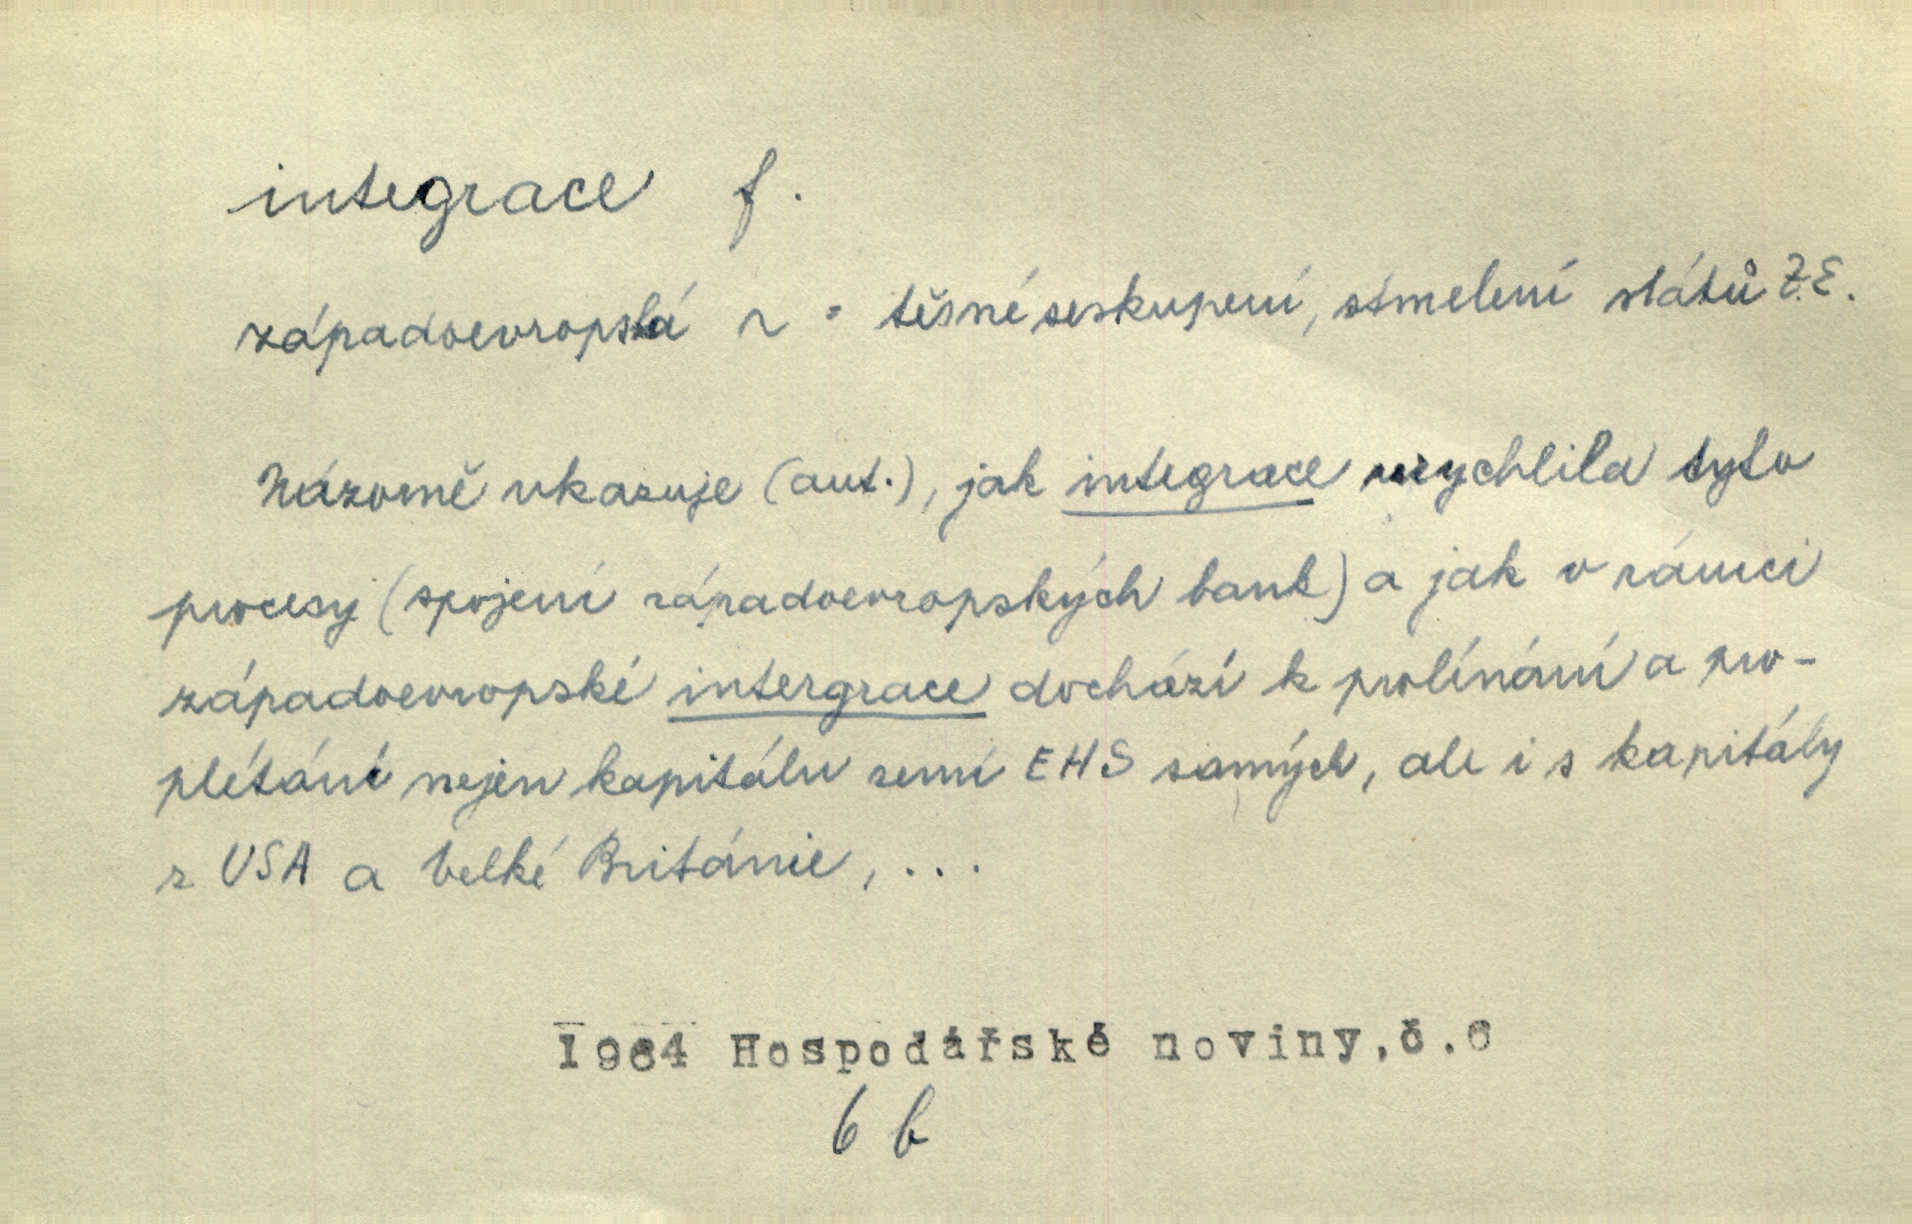 integrace f.
západoevropská ~ = těsné seskupení, stmelení států Z.E.
Názorně ukazuje (aut.), jak integrace urychlila tyto
procesy (spojení západoevropských bank) a jak v rámci
západoevropské intergrace dochází k prolínání a pro-
plétání nejen kapitálu zemí EHS samých, ale i s kapitály
z USA a Velké Británie, ...
1964 Hospodářské noviny, č.6
6 b